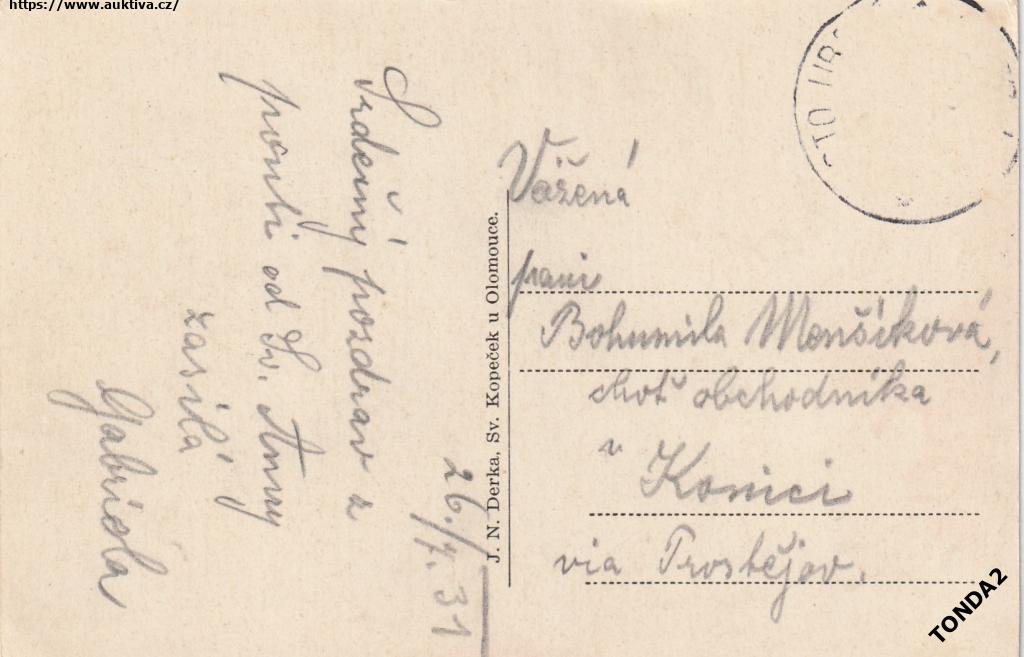 https://www.auktiva.cz/
26./7. 31
Srdečný pozdrav z
pouti od Sv. Anny
zasílá
Gabriela
J. N. Derka, Sv. Kopeček u Olomouce.
Vážená
paní
Bohumila Menšíková,
choť obchodníka
v Konici
via Prostějov.
TONDA2